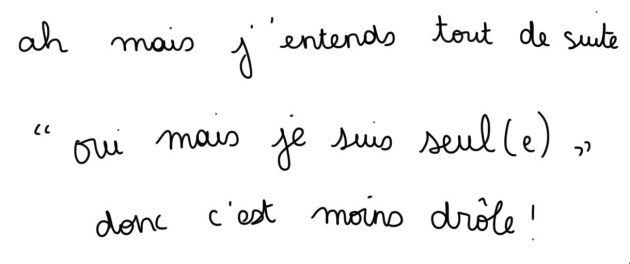 ah mais j'entends tout de suite
“ oui mais je suis seul(e) „
donc c'est moins drôle !